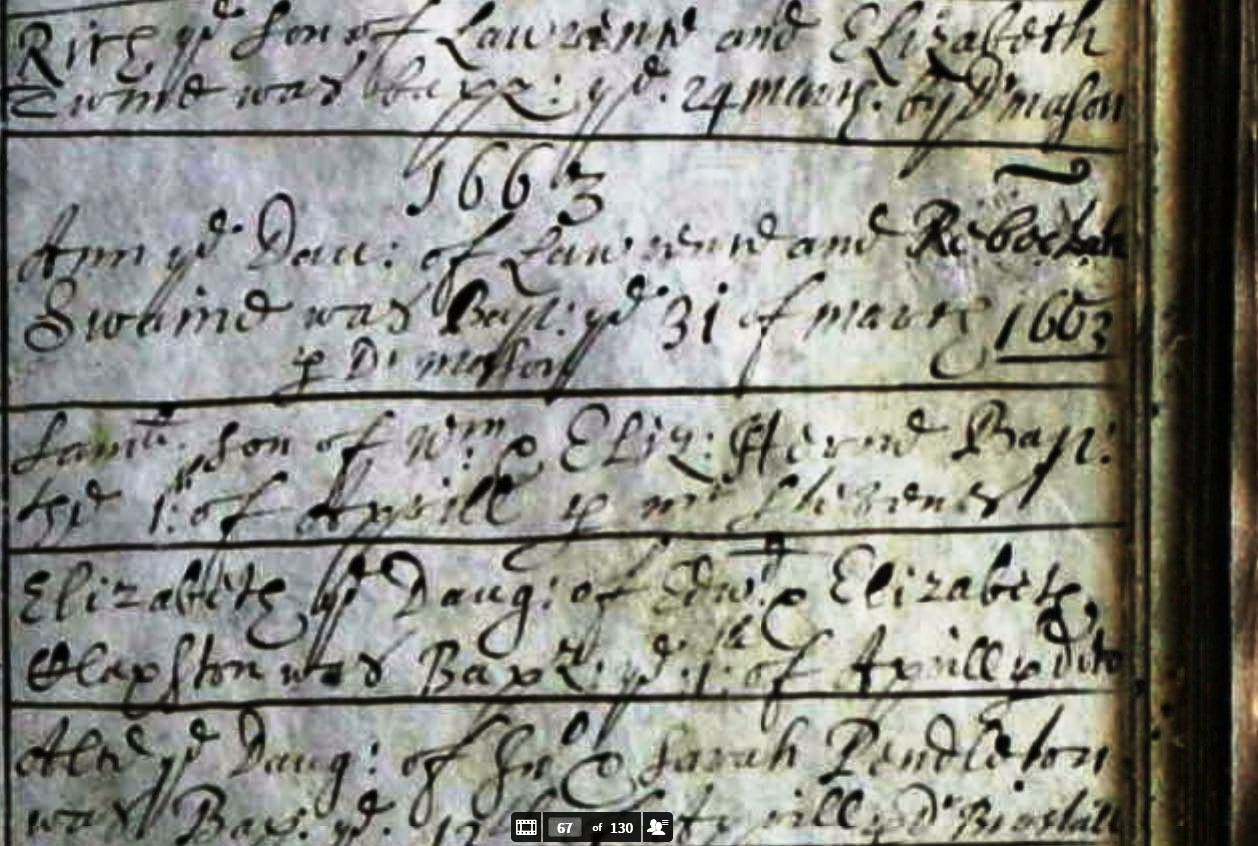 Rich ye son of Lawrence and Elizabeth
was bapz: ye. 24 march. by Dr mason
1663
Ann ye Dau: of Lawrence and Rebeckah
Swaine was Bapt: ye 31 of march 1663
p Dr mason
Samll: son of Wm & Eliz: Hearne Bapt:
the 1: of Aprill p mr Stevens
Elizabeth ye Daug: of Edwd & Elizabeth
Clapston was Bapz: ye 1st of Aprill p dito
Alce ye Daug: of Jno & Sarah Pendleton
was Bap: ye. 12th of Aprill p Dr
67 of 130